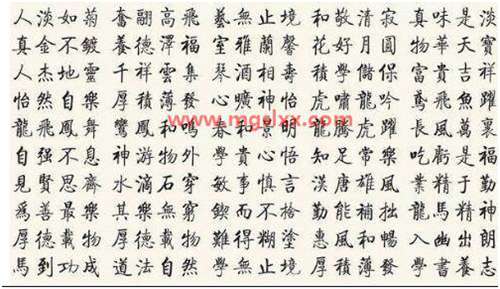 人淡如菊 奮翮高飛 藝無止境 和敬清寂 真味是淡
真金不鍍 養德澤福 室雅蘭馨 花好月圓 物華天寶
人杰地靈 千祥雲集 琴酒相壽 積學儲保 富貴吉祥
怡然自樂 厚積薄發 心曠神怡 虎嘯龍吟 鳶飛魚躍
龍飛鳳舞 鸞鳳和鳴 春和景明 龍騰虎躍 長風萬裏
自强不息 神游物外 學貴心悟 知足常樂 吃虧是福
見賢思齊 水滴石穿 敏事慎言 漢唐雄風 業精于勤
爲善最樂 其樂無窮 鍥而不捨 勤能補拙 龍馬精神
厚德載物 厚德載物 難得糊塗 惠風和暢 入幽出朗
馬到功成 道法自然 學無止境 厚積薄發 學書養志
www.mgqlxx.com